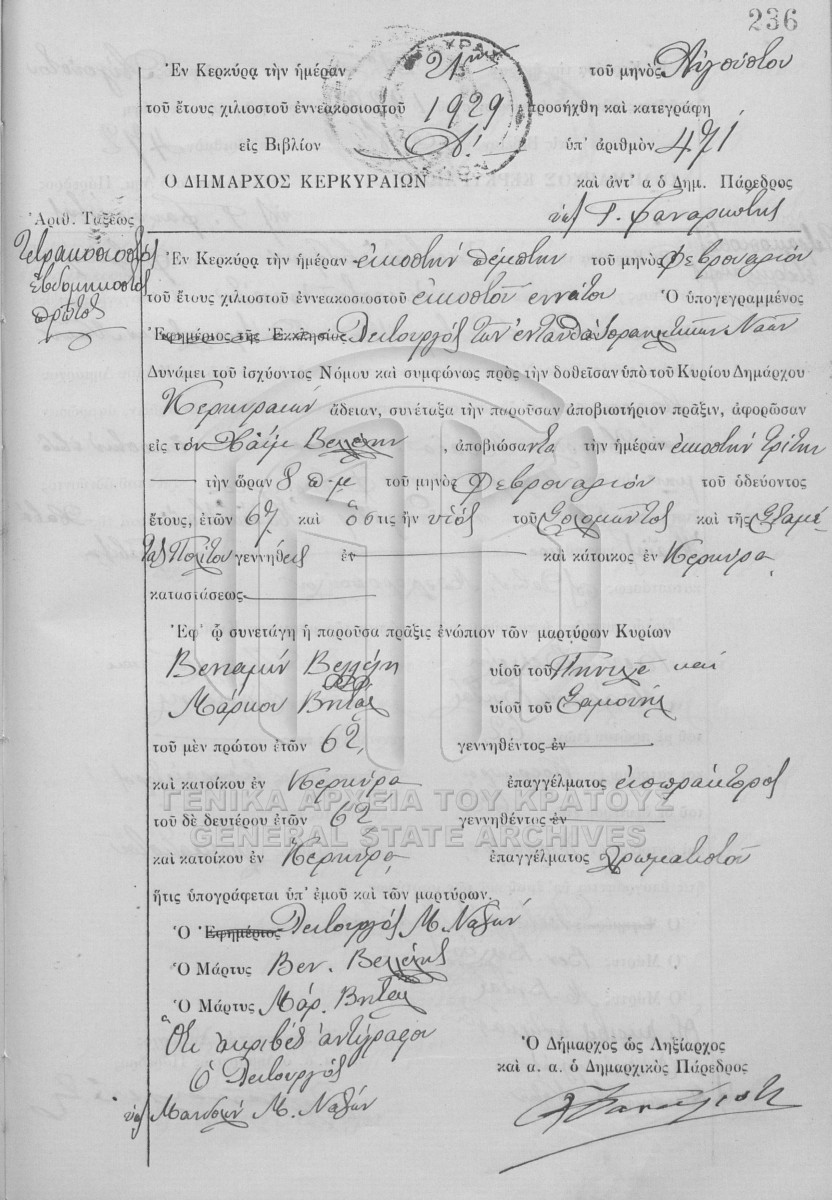 236
Ἐν Κερκύρᾳ τὴν ἡμέραν 21ην τοῦ μηνὸς Αὐγούστου
τοῦ ἔτους χιλιοστοῦ ἐννεακοσιοστοῦ 1929 προσήχθη καὶ κατεγράφη
εἰς Βιβλίον Α! ὑπ' ἀριθμὸν 471
Ο ΔΗΜΑΡΧΟΣ ΚΕΡΚΥΡΑΙΩΝ καὶ ἀντ' α ὁ Δημ. Πάρεδρος
Γ. Φαναριώτης
Ἀριθ. Τάξεως
Τετρακοσιοστὸς
ἑβδομηκοστὸς
πρῶτος
Ἐν Κερκύρᾳ τὴν ἡμέραν εἰκοστὴν πέμπτην τοῦ μηνὸς Φεβρουαρίου
τοῦ ἔτους χιλιοστοῦ ἐννεακοσιοστοῦ εἰκοστοῦ ἐννάτου Ὁ ὑπογεγραμμένος
Ἐφημέριος τῆς Ἐκκλησίας Λειτουργὸς τῶν ἐνταῦθα Ἰσραηλιτικῶν Ναῶν
Δυνάμει τοῦ ἰσχύοντος Νόμου καὶ συμφώνως πρὸς τὴν δοθεῖσαν ὑπὸ τοῦ Κυρίου Δημάρχου
Κερκυραίων ἄδειαν, συνέταξα τὴν παροῦσαν ἀποβιωτήριον πρᾶξιν, ἀφορῶσαν
εἰς τὸν Χαῒμ Βελέλην, ἀποβιώσαντα τὴν ἡμέραν εἰκοστὴν τρίτην
τὴν ὥραν 8 π.μ. τοῦ μηνὸς Φεβρουαρίου τοῦ ὁδεύοντος
ἔτους, ἐτῶν 67 καὶ ὅστις ἦν υἱὸς τοῦ Σολομῶντος καὶ τῆς Σταμέ
τας Πολίτου γεννηθεὶς ἐν καὶ κάτοικος ἐν Κερκύρᾳ
κατασιάσεως
Ἐφ' ᾧ συνετάγη ἡ παροῦσα πρᾶξις ἐνώπιον τῶν μαρτύρων Κυρίων
Βενιαμὶν Βελέλη υἱοῦ τοῦ Πινχὲ καὶ
Μάρκου Βητάλ υἱοῦ τοῦ Σαμουὴλ
τοῦ μὲν πρώτου ἐτῶν 62, γεννηθέντος ἐν
καὶ κατοίκου ἐν Κερκύρᾳ ἐπαγγέλματος εἰσπράκτορος
ΓΕΝΙΚΑ ΑΡΧΕΙΑ ΤΟΥ ΚΡΑΤΟΥΣ
τοῦ δὲ δευτέρου ἐτῶν 62 γεννηθέντος ἐν
GENERAL STATE ARCHIVES
καὶ κατοίκου ἐν Κερκύρᾳ ἐπαγγέλματος χρωματιστοῦ
ἥτις ὑπογράφεται ὑπ' ἐμοῦ καὶ τῶν μαρτύρων.
Ὁ Ἐφημέριος Λειτουργὸς Μ. Ναξὼν
Ὁ Μάρτυς Βεν. Βελέλης
Ὁ Μάρτυς Μάρ. Βητάλ
Ὅτι ἀκριβὲς ἀντίγραφον
Ὁ Λειτουργὸς
Μ. Ναξὼν
Ὁ Δήμαρχος ὡς Ληξίαρχος
καὶ α. α. ὁ Δημαρχικὸς Πάρεδρος